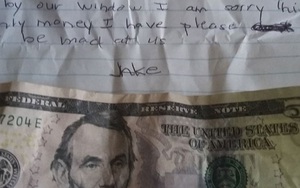 by our window I am sorry this
only money I have please
be mad at us
Jake
FEDERAL RESERVE NOTE
7204E
THE UNITED STATES
OF AMERICA
5